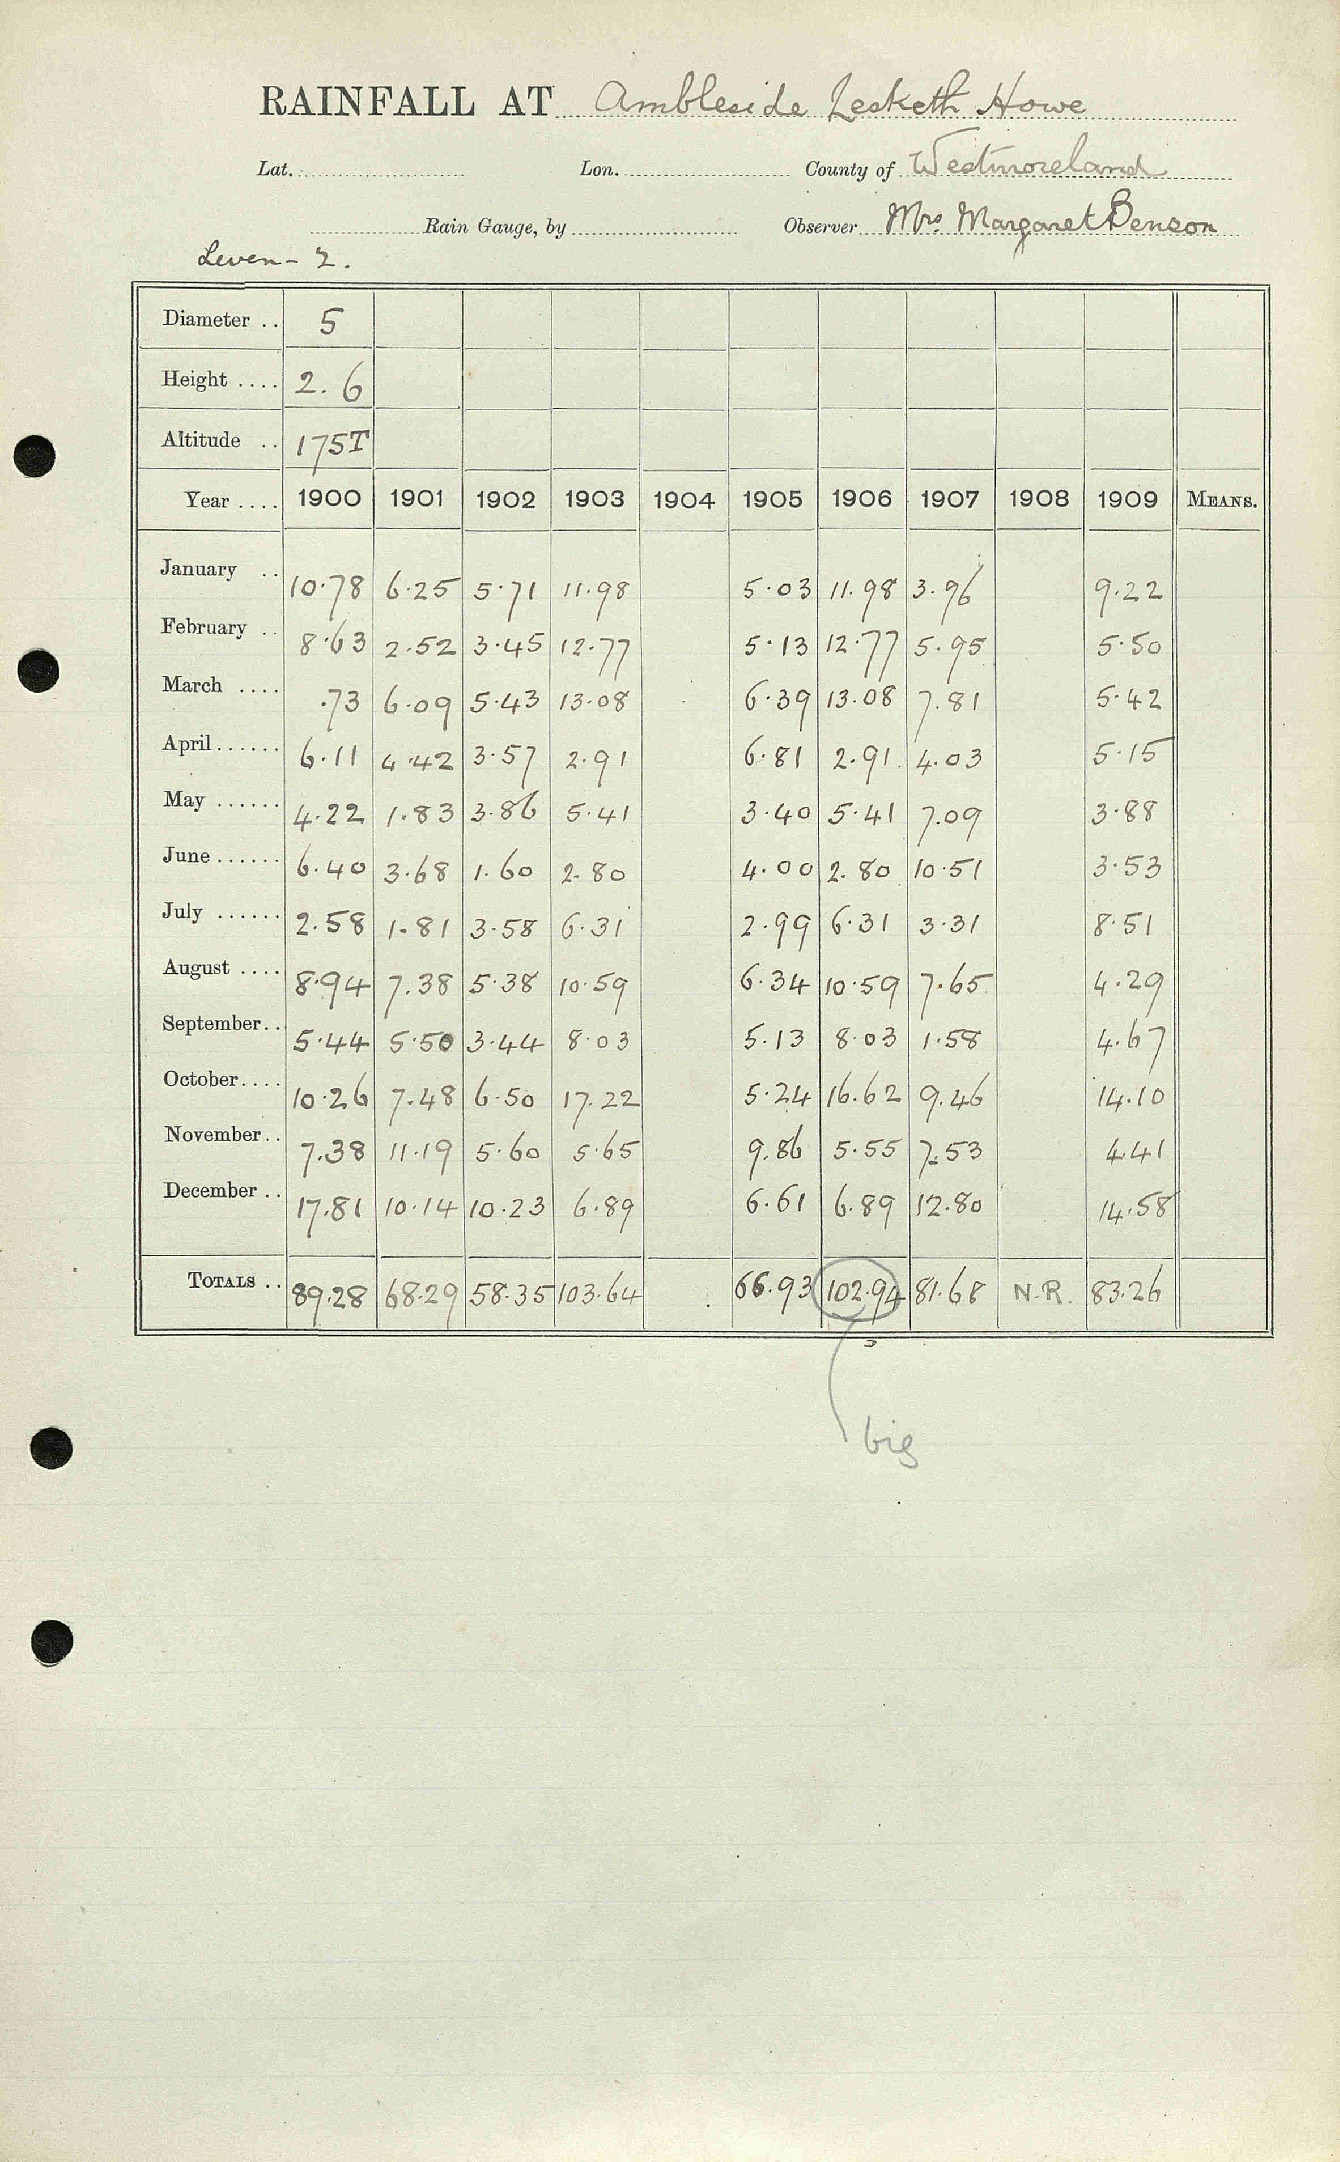 RAINFALL AT Ambleside Lesketh Howe
Lat. Lon. County of Westmoreland
Rain Gauge, by Observer Mrs Margaret Benson
Leven - 2.
Diameter .. 5
Height .... 2.6
Altitude .. 175T
Year .... 1900 1901 1902 1903 1904 1905 1906 1907 1908 1909 MEANS.
January .. 10.78 6.25 5.71 11.98 5.03 11.98 3.96 9.22
February .. 8.63 2.52 3.45 12.77 5.13 12.77 5.95 5.50
March .... .73 6.09 5.43 13.08 6.39 13.08 7.81 5.42
April...... 6.11 4.42 3.57 2.91 6.81 2.91 4.03 5.15
May ...... 4.22 1.83 3.86 5.41 3.40 5.41 7.09 3.88
June...... 6.40 3.68 1.60 2.80 4.00 2.80 10.51 3.53
July ...... 2.58 1.81 3.58 6.31 2.99 6.31 3.31 8.51
August .... 8.94 7.38 5.38 10.59 6.34 10.59 7.65 4.29
September.. 5.44 5.50 3.44 8.03 5.13 8.03 1.58 4.67
October.... 10.26 7.48 6.50 17.22 5.24 16.62 9.46 14.10
November.. 7.38 11.19 5.60 5.65 9.86 5.55 7.53 4.41
December .. 17.81 10.14 10.23 6.89 6.61 6.89 12.80 14.58
TOTALS .. 89.28 68.29 58.35 103.64 66.93 102.94 81.68 N.R. 83.26
big